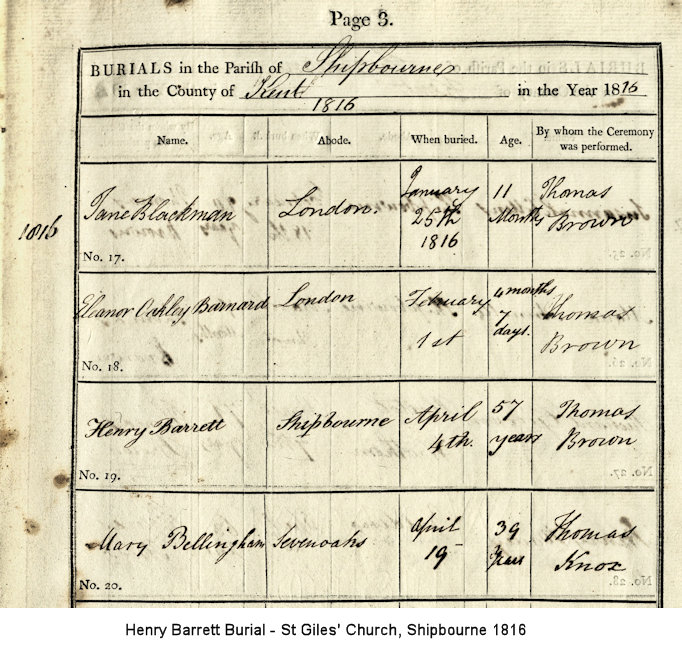 Page 3.
BURIALS in the Parish of Shipbourne
in the County of Kent in the Year 1816
1816
Name. Abode. When buried. Age. By whom the Ceremony was performed.
1816
Jane Blackman London. January 25th 1816 11 Months Thomas Brown
No. 17.
Eleanor Oakley Barnard London Febuary 1st 4 months 7 days. Thomas Brown
No. 18.
Henry Barrett Shipbourne April 4th. 57 years Thomas Brown
No. 19.
Mary Bellingham Sevenoaks April 19 39 Years Thomas Knox
No. 20.
Henry Barrett Burial - St Giles' Church, Shipbourne 1816